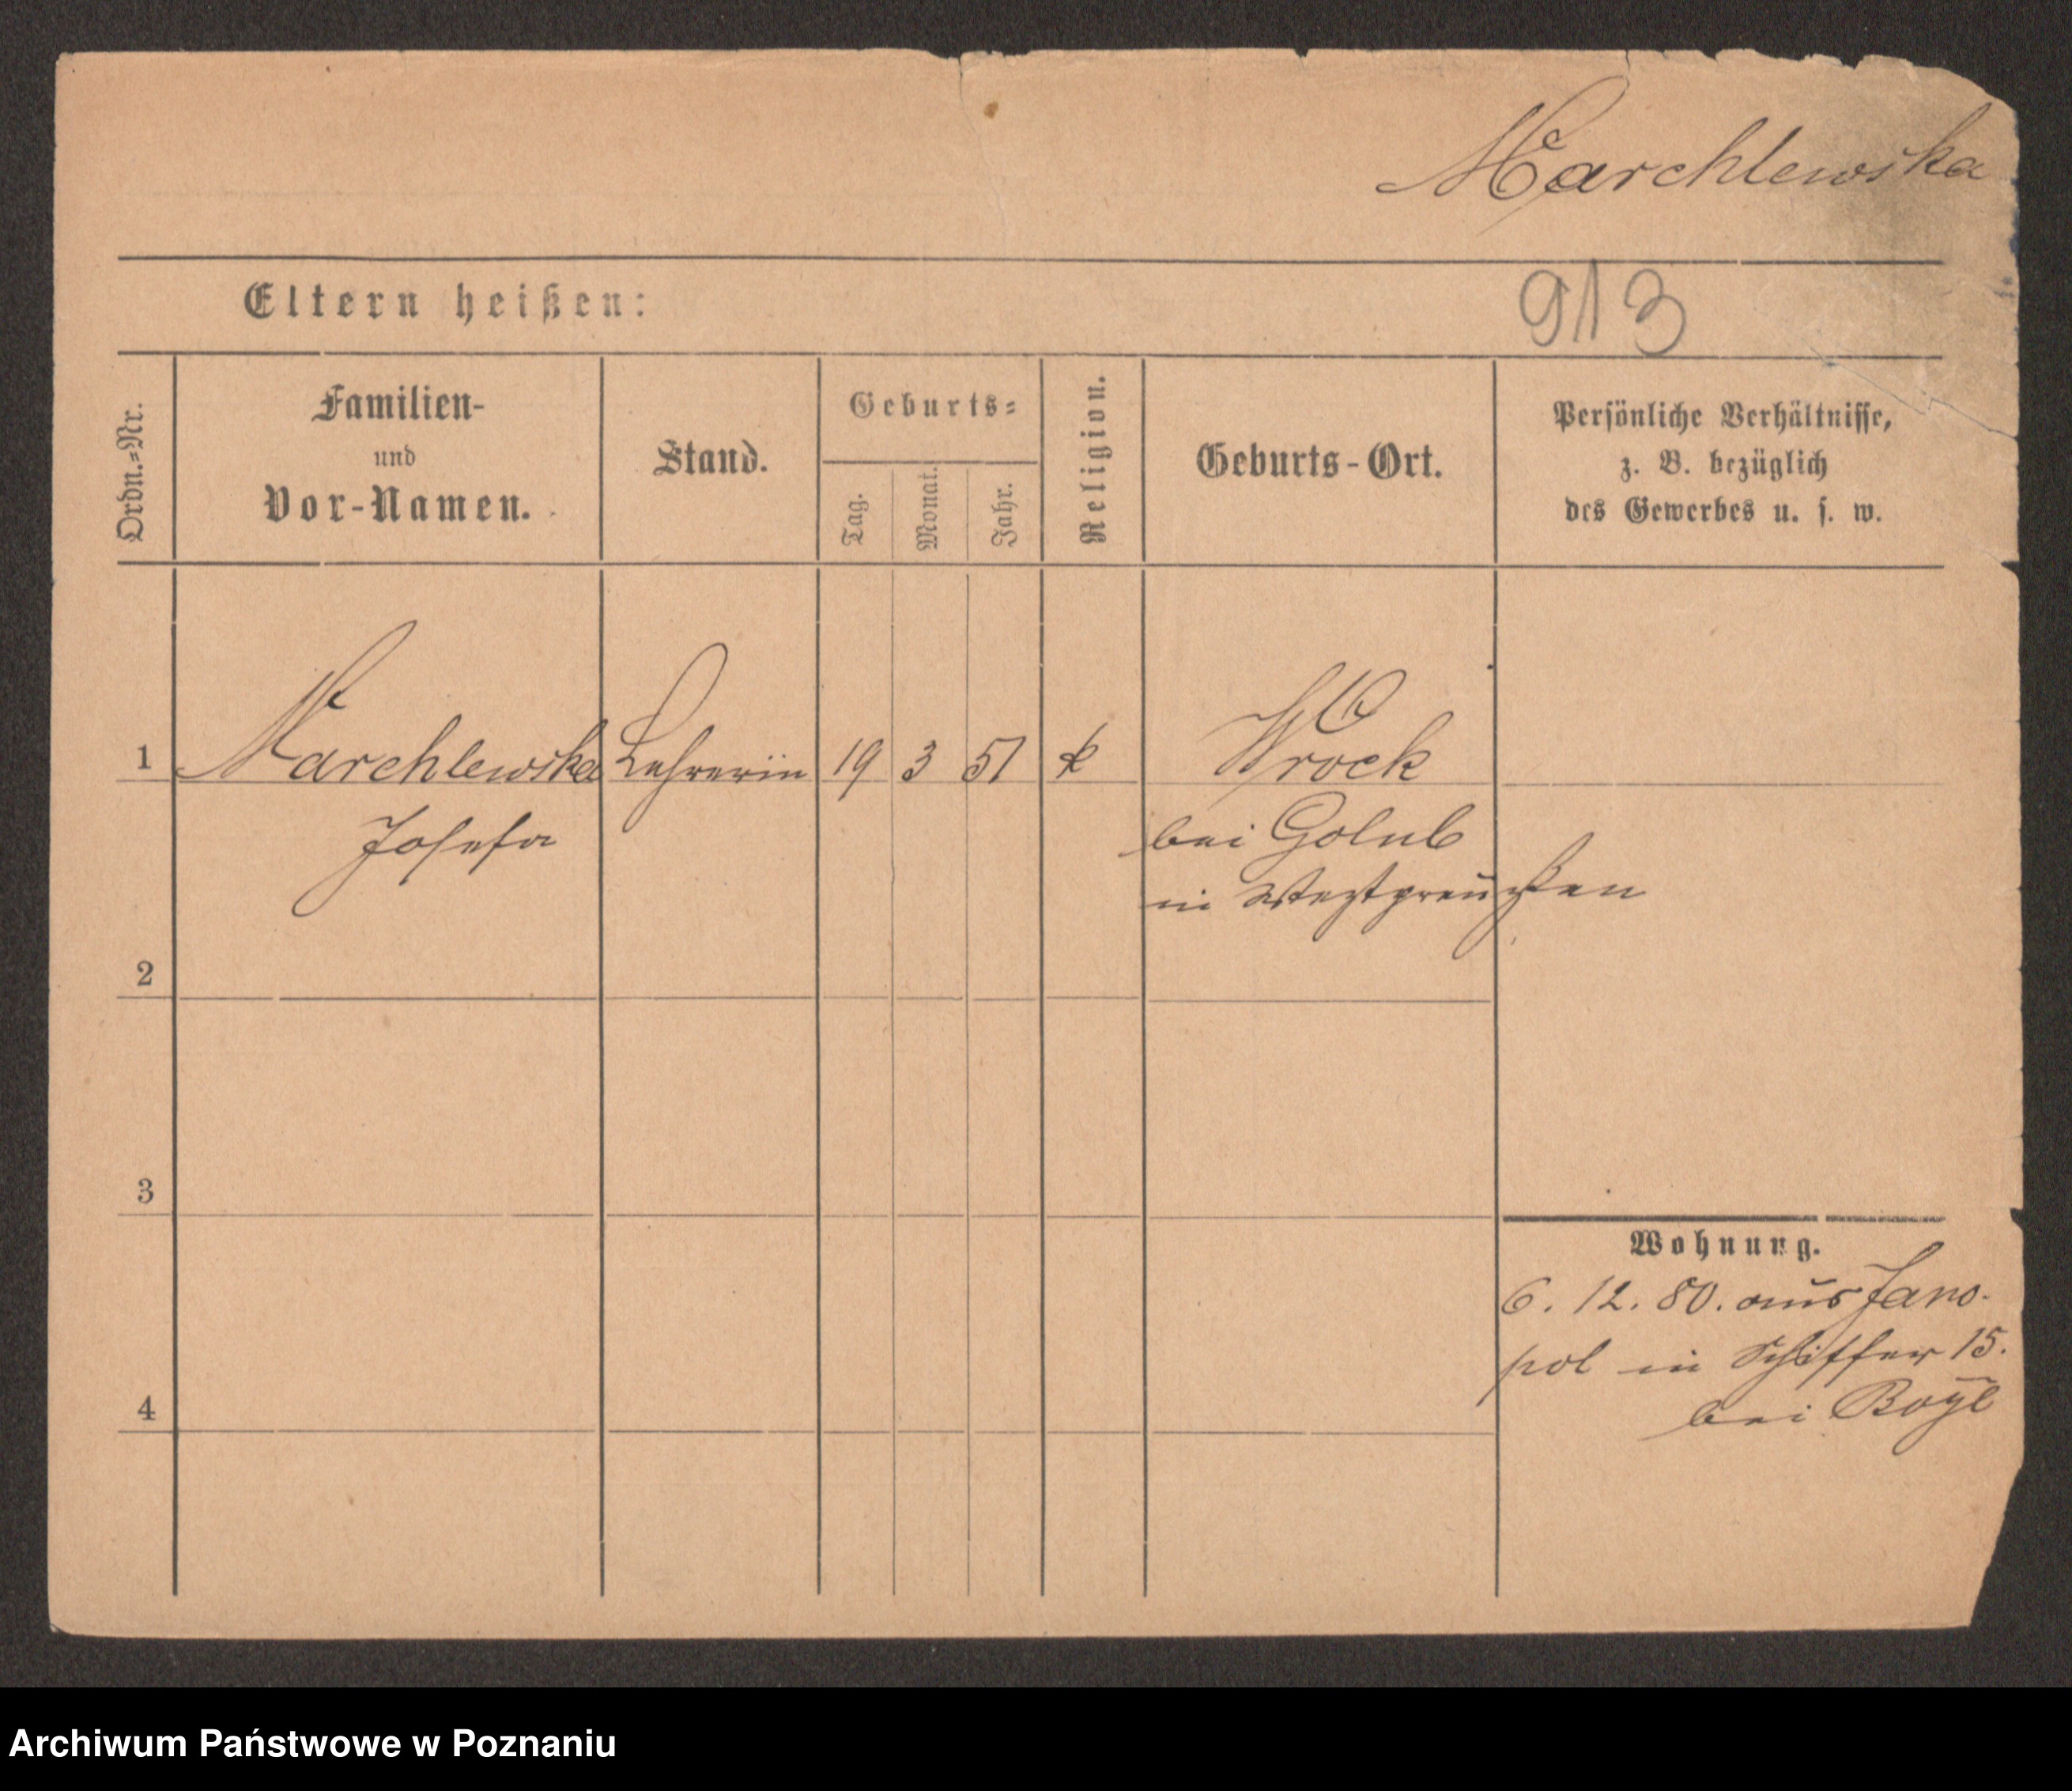 Marchlewska
Eltern heißen:
913
Ordn.=Nr.
Familien-
und
Vor-Namen.
Stand.
Geburts=
Tag.
Monat.
Jahr.
Religion.
Geburts-Ort.
Persönliche Verhältnisse,
z. B. bezüglich
des Gewerbes u. s. w.
1 Marchlewska Lehrerin 19 3 51 k Wrock
Josefa bei Golub
in Westpreußen
2
3
Wohnung.
6. 12. 80. aus Jano-
pol in Schiffer 15.
4
bei
Archiwum Państwowe w Poznaniu